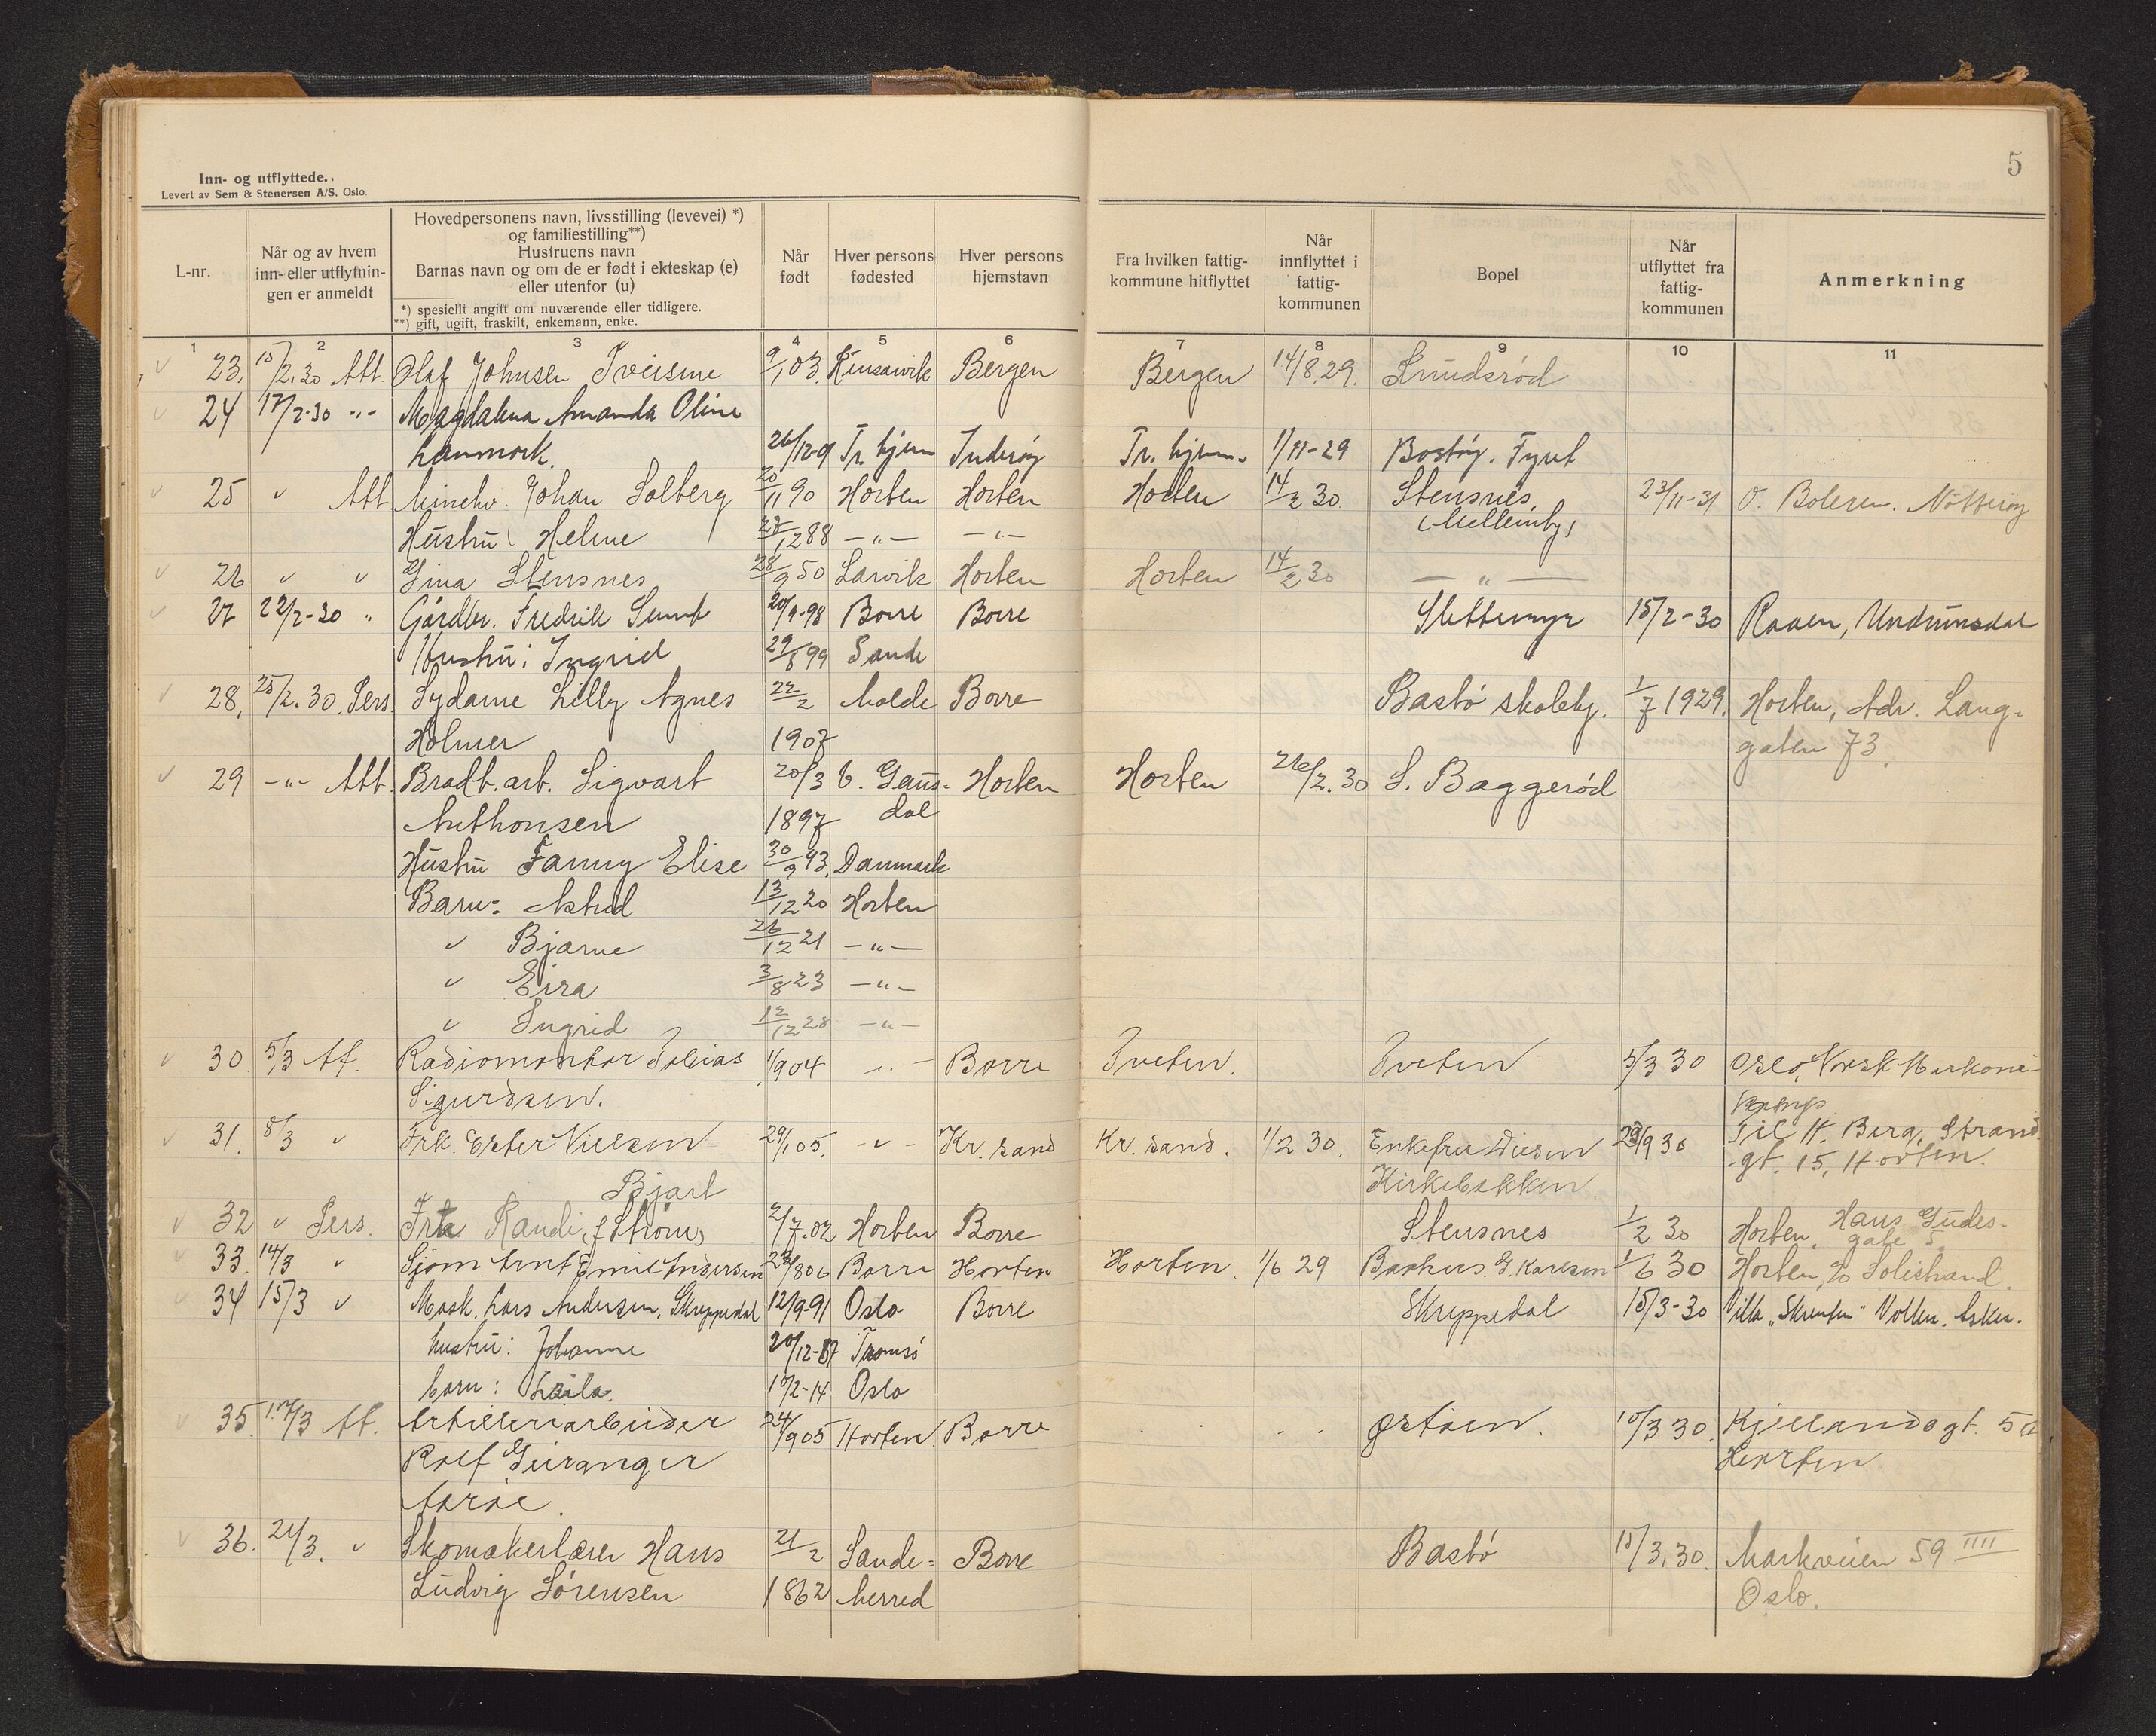 5
Inn- og utflyttede.
Levert av Sem & Stenersen A/S, Oslo.
L-nr.
Når og av hvem
inn- eller utflytnin-
gen er anmeldt
Hovedpersonens navn, livsstilling (levevei) *)
og familiestilling**)
Hustruens navn
Barnas navn og om de er født i ekteskap (e)
eller utenfor (u)
*) spesiellt angitt om nuværende eller tidligere.
**) gift, ugift, fraskilt, enkemann, enke.
Når
født
Hver persons
fødested
Hver persons
hjemstavn
Fra hvilken fattig-
kommune hitflyttet
Når
innflyttet i
fattig-
kommunen
Bopel
Når
utflyttet fra
fattig-
kommunen
Anmerkning
1 2 3 4 5 6 7 8 9 10 11
23. 15/2.30 Att. Olaf Johnsen 9/1 03. Kinsarvik Bergen Bergen 14/8.29. Knudsrød
24 17/2-30 -"- Magdalena Amanda Oline
26/12-01 Tr. hjem Inderøy Tr. hjem. 1/11-29 Bastøy. Fyret
25 " Att. Minehv. Johan Solberg 20/11 90 Horten Horten Horten 14/2 30. Stensnes 23/11-31 O. Boleren. Nøtterøy
Hustru Helene 27/12 88 -"- -"- (Mellemby)
26 " " Gina Stensnes 28/9 50 Larvik Horten Horten 14/2 30 -"-
27 22/2-30 " Gårdbr. Fredrik 20/9-98 Borre Borre Slettemyr 15/2-30 Raaen, Undrumsdal
Hustru: Ingrid 29/8 99 Sande
28. 25/2.30. Pers. Sydame Lilly Agnes 22/2 Molde Borre Bastø skoleby. 1/7 1929. Horten, Adr. Lang-
Holmer 1907 gaten 73.
29 -"- Att. Bradb.arb. Sigvart 20/3 V. Gaus- Horten Horten 26/2.30 S. Baggerød
Anthonsen 1897 dal
Hustru Fanny Elise 30/9 93. Danmark
Barn: Astrid 13/12 20 Horten
" Bjarne 26/12 21 -"-
" Eira 3/8 23 -"-
" Ingrid 12/12 28 -"-
30. 5/3 Att. Radiomontør Tobias 1/9 04 -"- Borre Tveten. Tveten 5/3 30 Oslo, Norsk Markoni-
Sigurdsen.
31. 8/3 " Frk. Ester Nielsen 29/1 05. -"- Kr. sand Kr. sand. 1/2 30. Enkefru 23/9 30 Til H. Berg, Strand
Kirkebakken gt. 15, Horten.
Bjart
32 " Pers. Fru Randi, f. Strøm, 2/7.02 Horten Borre Stensnes 1/2 30 Horten, Hans Gudes-
gate 5
33. 14/3 " Sjøm. Arnt Emil Andersen 23/8 06 Borre Horten Horten. 1/6 29 Bakhus. G. Karlsen 1/6 30 Horten, c/o Solistrand.
34 15/3 " Mask. Lars Andersen, Skreppedal 12/9-91 Oslo Borre Skreppedal 15/3-30 Villa "Skrenten" Vollen. Asker.
hustru: Johanne 20/12-87 Tromsø
barn: Laila. 10/2-14 Oslo
35. 17/3 Att. Artilleriarbeider 24/9 05 Horten. Borre Østøen. 10/3 30. Kjellandsgt. 5a
Rolf Geiranger Horten
Aarøe.
36. 21/3. " Skomakerlærer Hans 21/2 Sande- Borre Bastø 15/3.30. Markveien 59 IIII
Ludvig Sørensen 1862 herred Oslo.